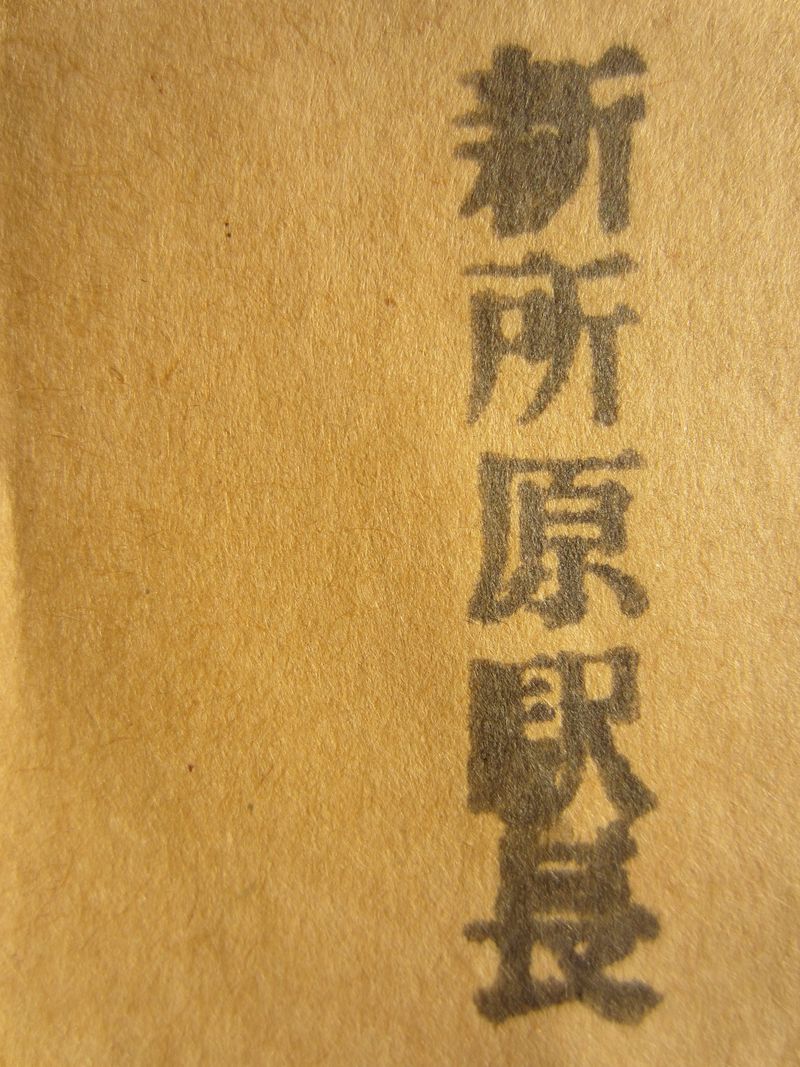 新所原駅長